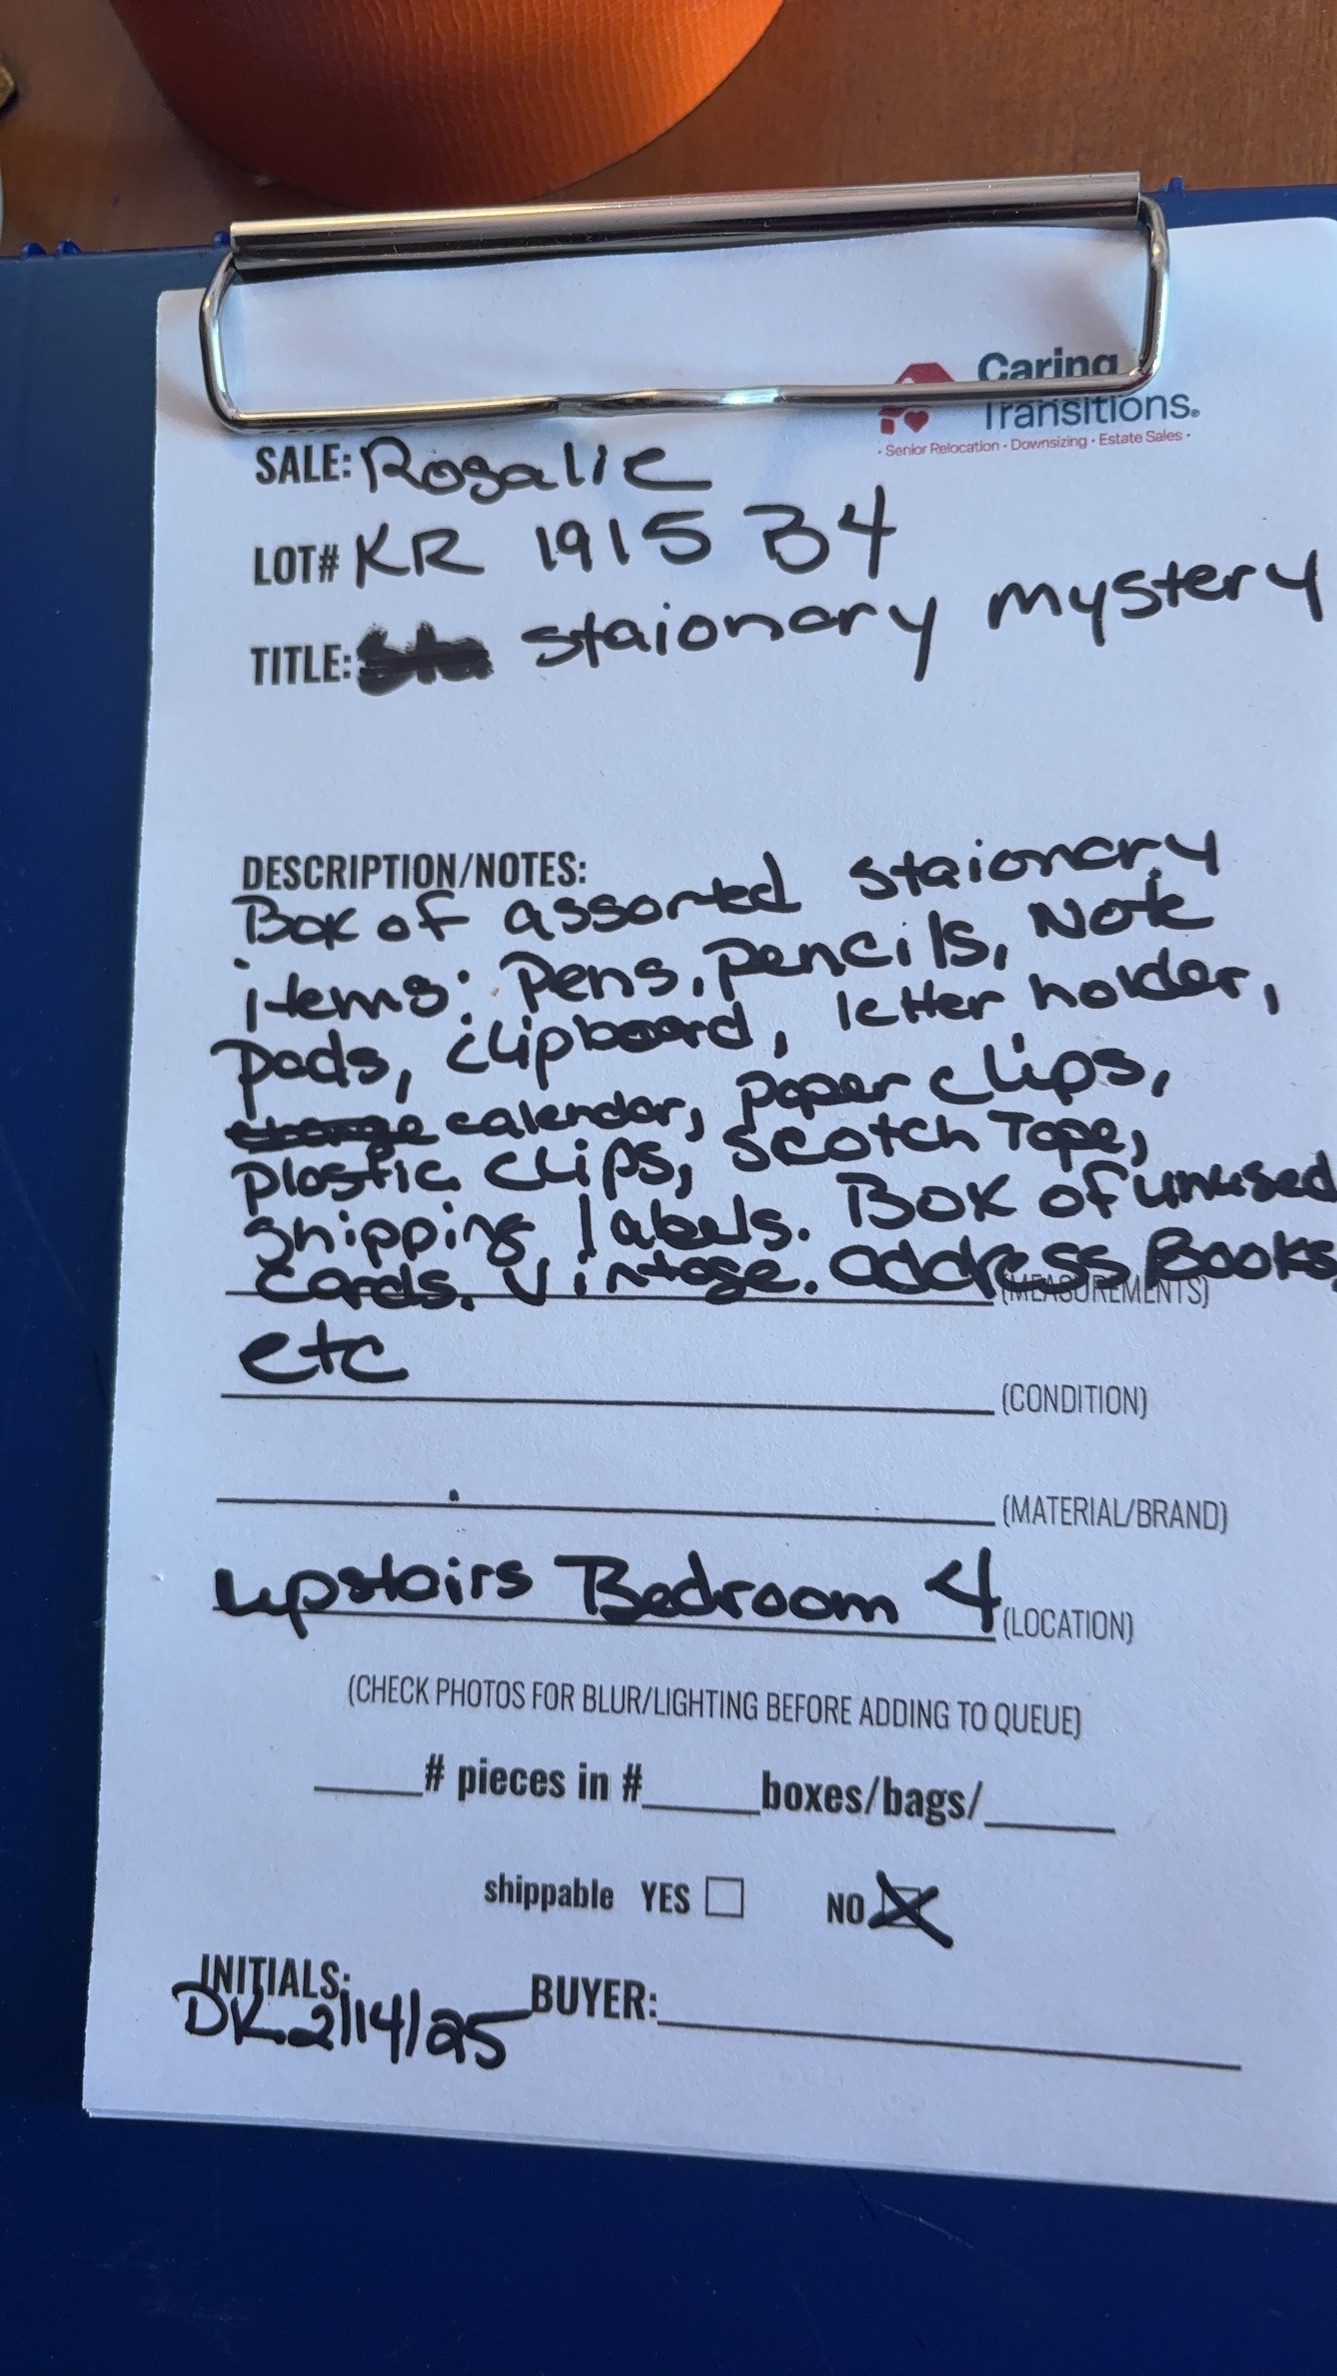 Caring
Transitions.
· Senior Relocation · Downsizing · Estate Sales ·
SALE: Rosalie
LOT# KR 1915 B4
TITLE: Sta staionary mystery
DESCRIPTION/NOTES:
Box of assorted staionary
items: Pens, pencils, Note
pads, clipboard, letter holder,
calendar, paper clips,
plastic clips, scotch Tape,
shipping labels. Box of unused
cards. Vintage. address Books,
(MEASUREMENTS)
etc
(CONDITION)
(MATERIAL/BRAND)
upstairs Bedroom 4 (LOCATION)
(CHECK PHOTOS FOR BLUR/LIGHTING BEFORE ADDING TO QUEUE)
# pieces in # boxes/bags/
shippable YES NO
INITIALS: BUYER:
DK 2/14/25